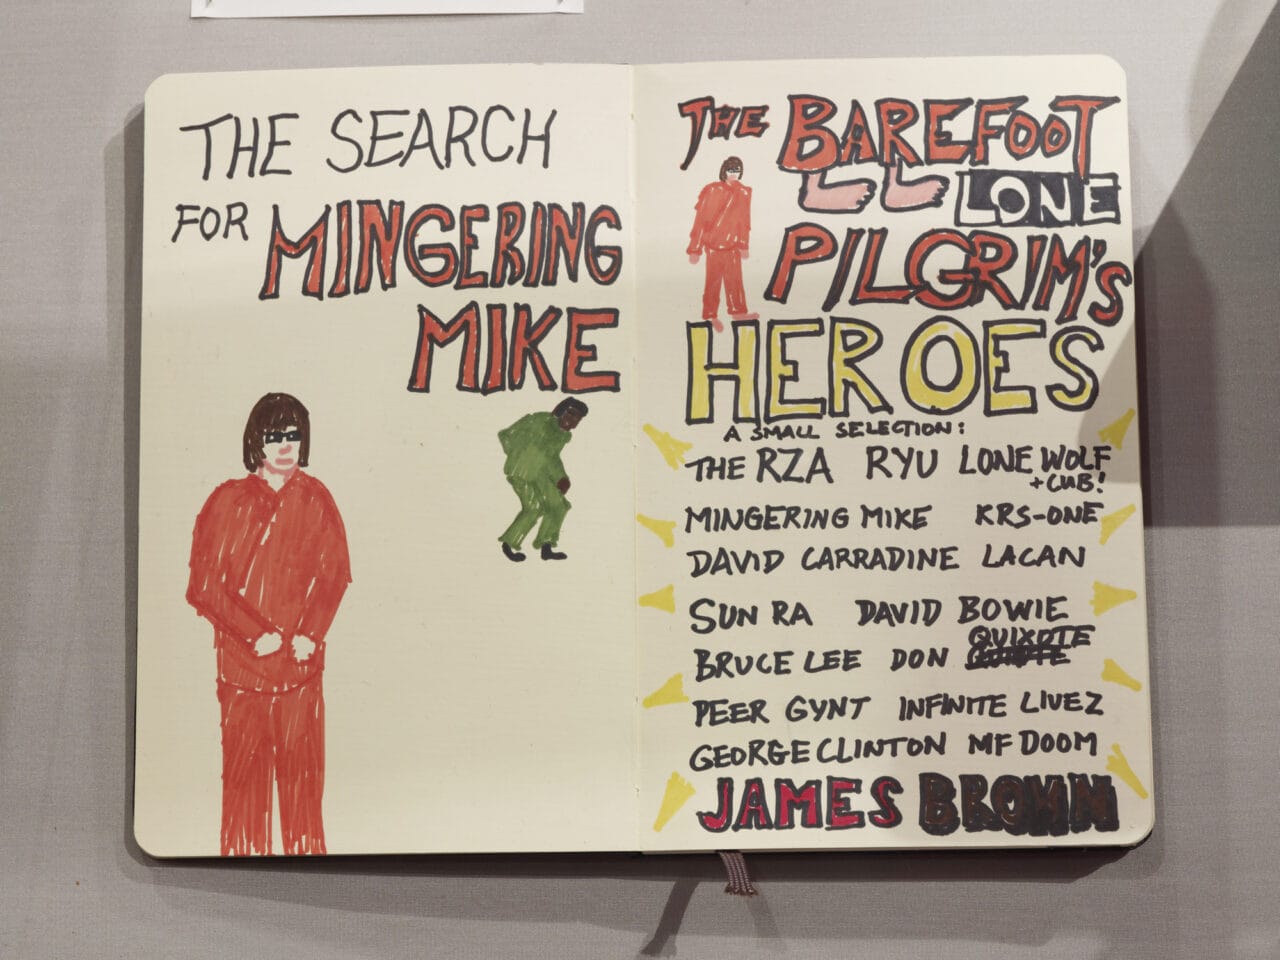 THE SEARCH
FOR MINGERING
MIKE
THE BAREFOOT
LONE
PILGRIM'S
HEROES
A SMALL SELECTION:
THE RZA RYU LONE WOLF
+ CUB!
MINGERING MIKE KRS-ONE
DAVID CARRADINE LACAN
SUN RA DAVID BOWIE
BRUCE LEE DON QUIXOTE
PEER GYNT INFINITE LIVEZ
GEORGE CLINTON MF DOOM
JAMES BROWN